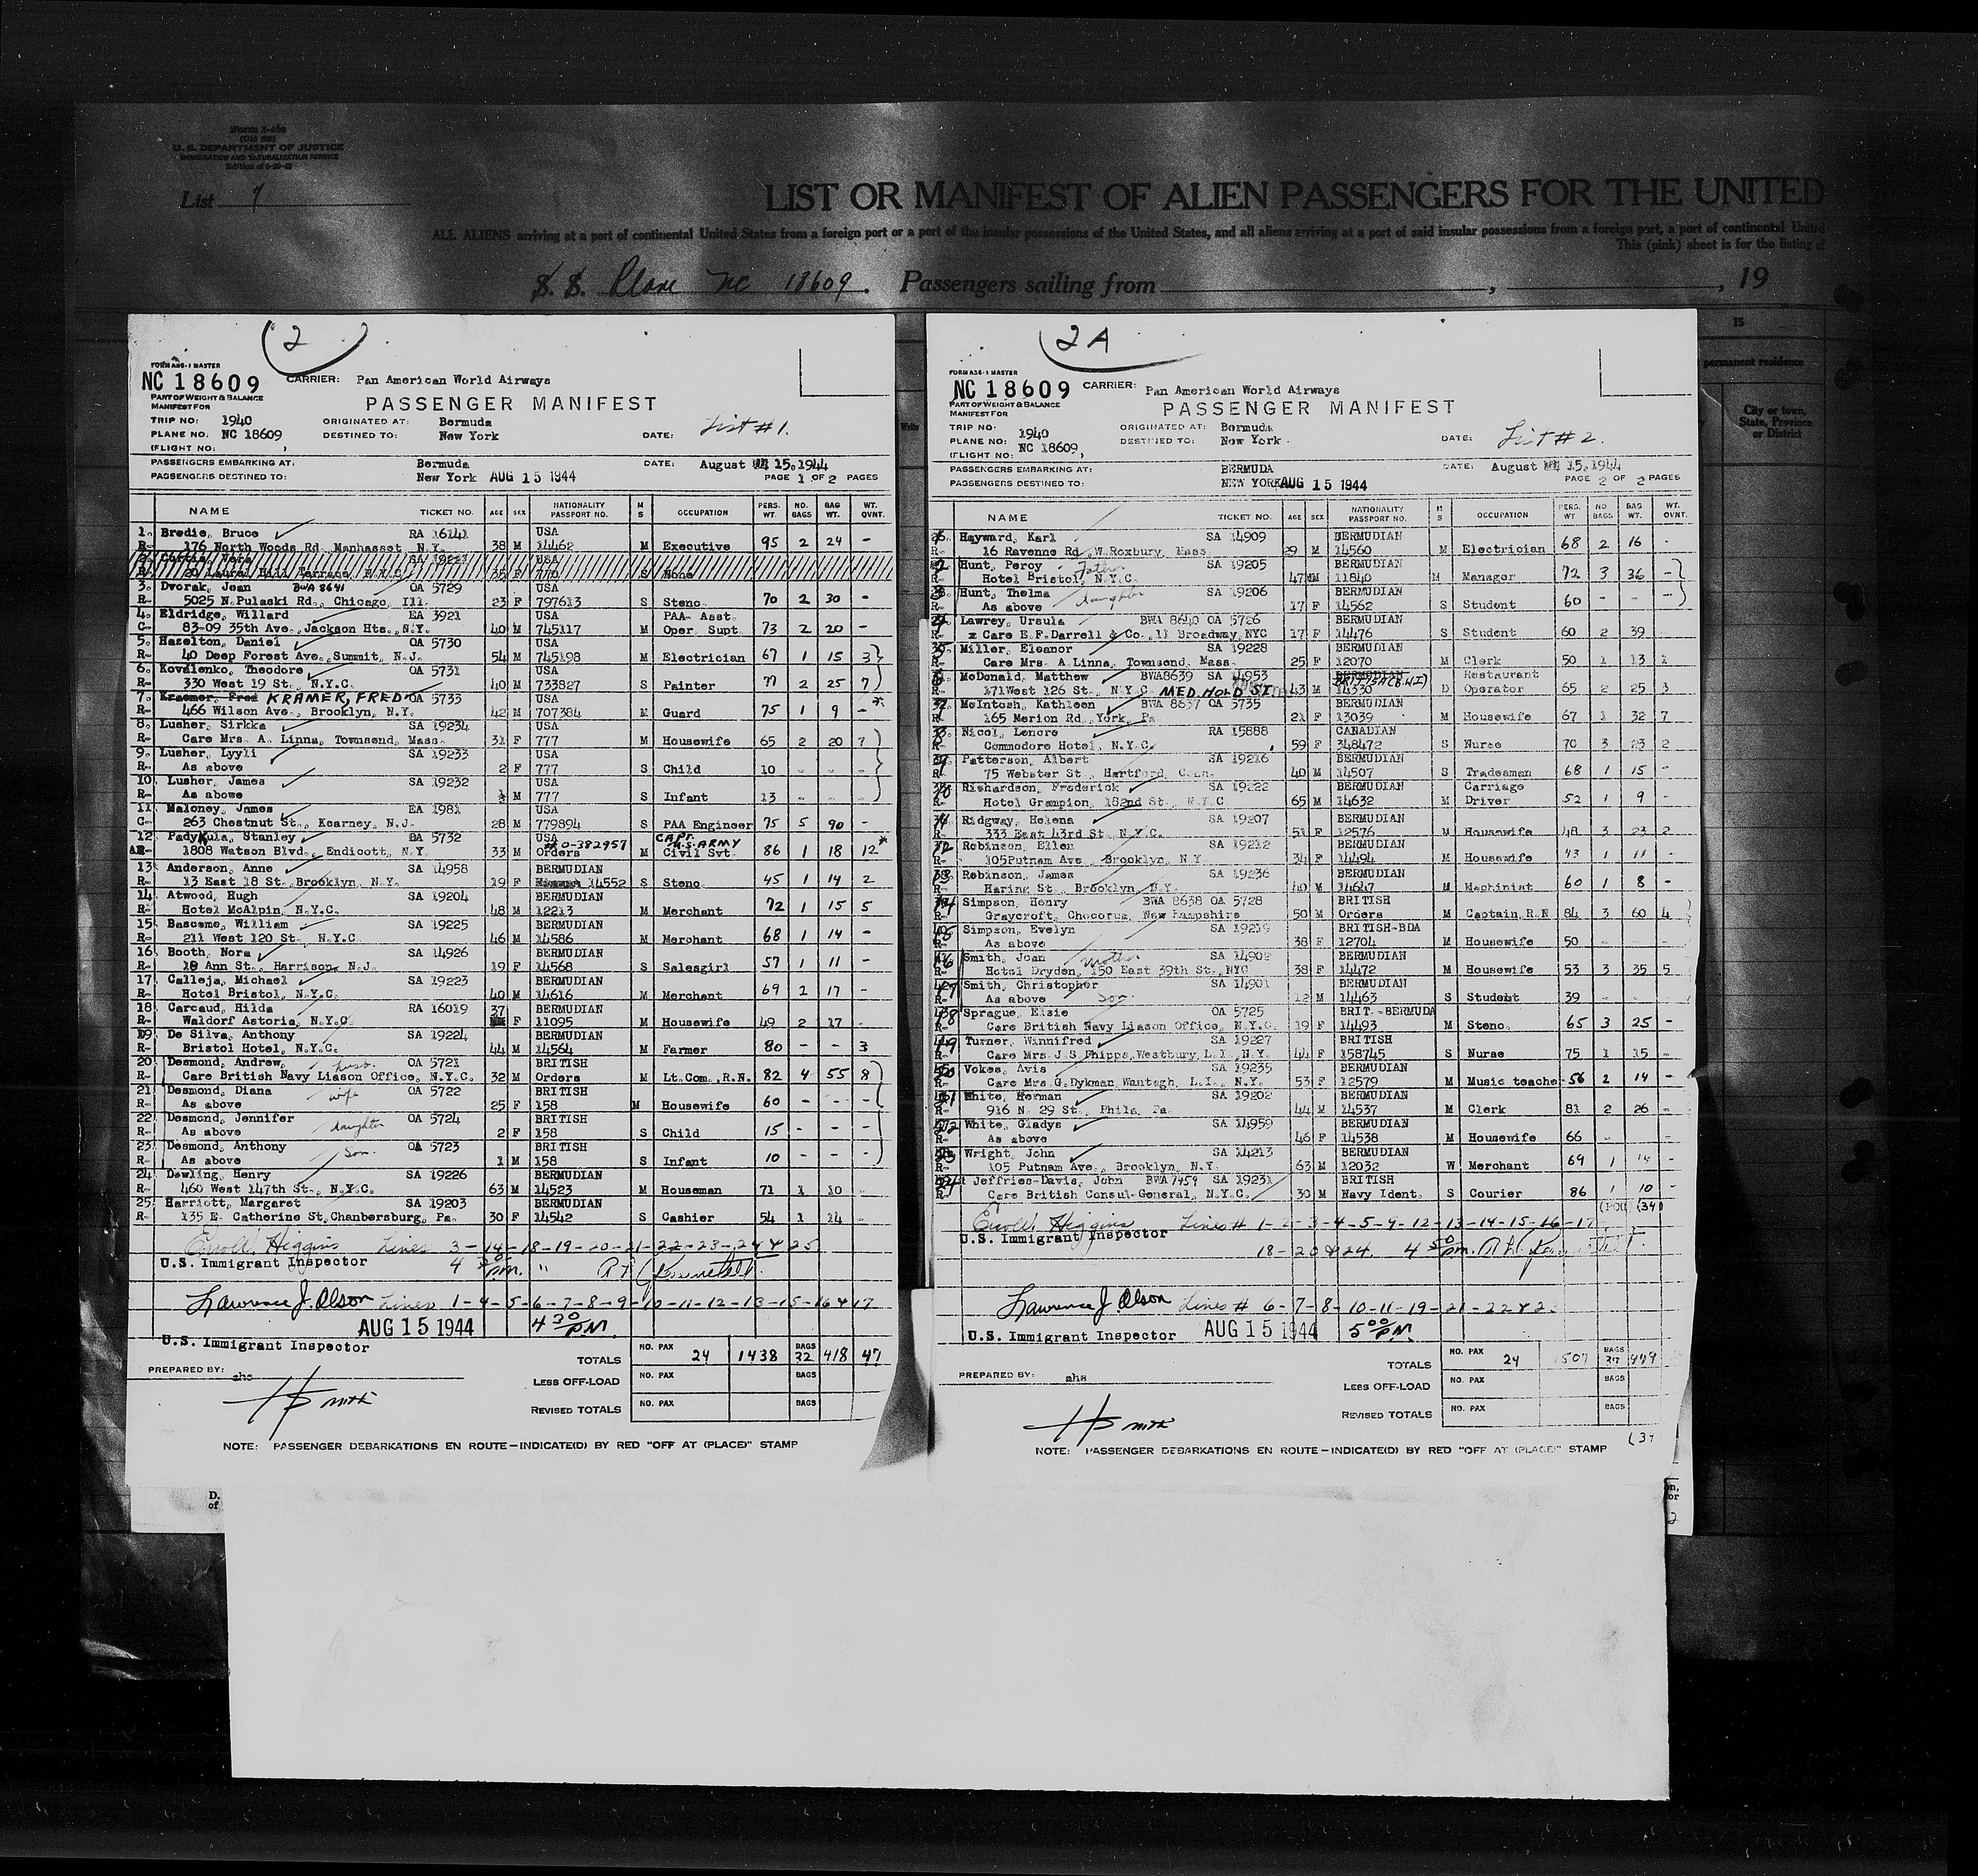 Form I-460
(Old 500)
U. S. DEPARTMENT OF JUSTICE
IMMIGRATION AND NATURALIZATION SERVICE
List 7
LIST OR MANIFEST OF ALIEN PASSENGERS FOR THE UNITED
ALL ALIENS arriving at a port of continental United States from a foreign port or a port of the insular possessions of the United States, and all aliens arriving at a port of said insular possessions from a foreign port, a port of continental United
This (pink) sheet is for the listing of
S. S. Plane NC 18609. Passengers sailing from , , 19
15
permanent residence
City or town,
State, Province
or District
(2)
FORM ASG-1 MASTER
NC 18609 CARRIER: Pan American World Airways
PART OF WEIGHT & BALANCE
MANIFEST FOR
PASSENGER MANIFEST
TRIP NO: 1940 ORIGINATED AT: Bermuda
PLANE NO. NC 18609 DESTINED TO: New York DATE: List # 1.
(FLIGHT NO: )
PASSENGERS EMBARKING AT: Bermuda DATE: August 15, 1944
PASSENGERS DESTINED TO: New York AUG 15 1944 PAGE 1 OF 2 PAGES
NAME TICKET NO. AGE SEX NATIONALITY PASSPORT NO. M S OCCUPATION PERS. WT. NO. BAGS BAG WT. WT. OVNT.
1. Bredie, Bruce RA 16141 USA
R- 176 North Woods Rd Manhasset N.Y. 38 M 14462 M Executive 95 2 24 -
R- 20 Laurel Hill Terrace N.Y.C. 35 F 770 S None
3. Dvorak, Jean BWA 8641 OA 5729 USA
R- 5025 N.Pulaski Rd., Chicago, Ill. 23 F 797613 S Steno. 70 2 30 -
4. Eldridge, Willard EA 3921 USA PAA- Asst.
C- 83-09 35th Ave., Jackson Hts., N.Y. 40 M 745117 M Oper. Supt. 73 2 20 -
5. Hazelton, Daniel OA 5730 USA
R- 40 Deep Forest Ave., Summit, N.J. 54 M 745198 M Electrician 67 1 15 3
6. Kovalenko, Theodore OA 5731 USA
R- 330 West 19 St., N.Y.C. 40 M 733827 S Painter 77 2 25 7
7. Kraemer, Fred KRAMER, FRED OA 5733 USA
R- 466 Wilson Ave., Brooklyn, N.Y. 42 M 707384 M Guard 75 1 9 - *
8. Lusher, Sirkka SA 19234 USA
R- Care Mrs. A. Linna, Townsend, Mass. 31 F 777 M Housewife 65 2 20 7
9. Lusher, Lyyli SA 19233 USA
R- As above 2 F 777 S Child 10 - - -
10. Lusher, James SA 19232 USA
R- As above M 777 S Infant 13 - - -
11 Maloney, James EA 1981 USA
C- 263 Chestnut St., Kearney, N.J. 28 M 779894 S PAA Engineer 75 5 90 -
12 Padykula, Stanley OA 5732 USA #0-382957 CAPT. U.S. ARMY
AR- 1808 Watson Blvd., Endicott, N.Y. 33 M Orders M Civil Svt. 86 1 18 12 *
13 Anderson, Anne SA 14958 BERMUDIAN
R- 13 East 18 St., Brooklyn, N.Y. 19 F 14552 S Steno. 45 1 14 2
14 Atwood, Hugh SA 19204 BERMUDIAN
R- Hotel McAlpin, N.Y.C. 48 M 12213 M Merchant 72 1 15 5
15 Bascome, William SA 19225 BERMUDIAN
R- 211 West 120 St., N.Y.C. 46 M 14586 M Merchant 68 1 14 -
16 Booth, Nora SA 14926 BERMUDIAN
R- 18 Ann St., Harrison, N.J. 19 F 14568 S Salesgirl 57 1 11 -
17 Calleja, Michael SA 19223 BERMUDIAN
R- Hotel Bristol, N.Y.C. 40 M 14616 M Merchant 69 2 17 -
18 Carcaud, Hilda RA 16019 37 BERMUDIAN
R- Waldorf Astoria, N.Y.C. F 11095 M Housewife 49 2 17 -
19 De Silva, Anthony SA 19224 BERMUDIAN
R- Bristol Hotel, N.Y.C. 44 M 14564 M Farmer 80 - - 3
20 Desmond, Andrew, husb. OA 5721 BRITISH
R- Care British Navy Liason Office, N.Y.C. 32 M Orders M Lt.Com., R.N. 82 4 55 8
21 Desmond, Diana wife OA 5722 BRITISH
R- As above 25 F 158 M Housewife 60 - - -
22 Desmond, Jennifer daughter OA 5724 BRITISH
R- As above 2 F 158 S Child 15 - - -
23 Desmond, Anthony Son. OA 5723 BRITISH
R- As above 1 M 158 S Infant 10 - - -
24 Dowling, Henry SA 19226 BERMUDIAN
R- 460 West 147th St., N.Y.C. 63 M 14523 M Houseman 71 1 10 -
25 Harriott, Margaret SA 19203 BERMUDIAN
R- 135 E. Catherine St. Chanbersburg, Pa. 30 F 14542 S Cashier 54 1 14 -
Erroll Higgins Lines 3-14-18-19-20-21-22-23-24 & 25
U.S. Immigrant Inspector 4 pm. "
Lawrence J. Olson Lines 1-4-5-6-7-8-9-10-11-12-13-15-16 & 17
AUG 15 1944 4 30 PM.
U.S. Immigrant Inspector
TOTALS NO. PAX 24 1438 BAGS 32 418 47
PREPARED BY: ahs
LESS OFF-LOAD NO. PAX BAGS
HSmith
REVISED TOTALS NO. PAX BAGS
NOTE: PASSENGER DEBARKATIONS EN ROUTE—INDICATE(D) BY RED "OFF AT (PLACE)" STAMP
2A
FORM ASG-1 MASTER
NC 18609 CARRIER: Pan American World Airways
PART OF WEIGHT & BALANCE
MANIFEST FOR
PASSENGER MANIFEST
TRIP NO: 1940 ORIGINATED AT: Bermuda
PLANE NO: NC 18609 DESTINED TO: New York. DATE: List # 2.
(FLIGHT NO: )
PASSENGERS EMBARKING AT: BERMUDA DATE: August 15, 1944
PASSENGERS DESTINED TO: NEW YORK AUG 15 1944 PAGE 2 OF 2 PAGES
NAME TICKET NO. AGE SEX NATIONALITY PASSPORT NO. M S OCCUPATION PERS. WT. NO. BAGS BAG WT. WT. OVNT.
Hayward, Karl SA 14909 BERMUDIAN
R- 16 Ravenne Rd., W.Roxbury, Mass 29 M 14560 M Electrician 68 2 16 -
Hunt, Percy Father SA 19205 BERMUDIAN
R- Hotel Bristol, N.Y.C. 47 M 11840 M Manager 72 3 36 -
Hunt, Thelma daughter SA 19206 BERMUDIAN
R- As above 17 F 14562 S Student 60 - - -
Lawrey, Ursula BWA 8640 OA 5726 BERMUDIAN
R- Care E.F.Darrell & Co., 11 Broadway, NYC 17 F 14476 S Student 60 2 39 -
Miller, Eleanor SA 19228 BERMUDIAN
R- Care Mrs. A.Linna, Townsend, Mass. 25 F 12070 M Clerk 50 1 13 1
McDonald, Matthew BWA8639 SA 14953 BERMUDIAN BRITISH(B.W.I) Restaurant
R- 171West 126 St., N.Y.C. MED. HOLD SI 43 M 14330 D Operator 65 2 25 3
McIntosh, Kathleen BWA 8637 OA 5735 BERMUDIAN
R- 165 Merion Rd., York, Pa 21 F 13039 M Housewife 67 1 32 7
Nicol, Lenore RA 15888 CANADIAN
Commodore Hotel, N.Y.C. 59 F 348472 S Nurse 70 3 23 2
Patterson, Albert SA 19216 BERMUDIAN
R- 75 Webster St., Hartford, Conn. 40 M 14507 S Tradesman 68 1 15 -
Richardson, Frederick SA 19222 BERMUDIAN Carriage
R- Hotel Grampion, 182nd St., N.Y.C 65 M 14632 M Driver 52 1 9 -
Ridgway, Helena SA 19207 BERMUDIAN
R- 333 East 43rd St., N.Y.C. 51 F 12576 M Housewife 48 3 23 2
Robinson, Ellen SA 19212 BERMUDIAN
R- 105Putnam Ave., Brooklyn, N.Y. 34 F 14494 M Housewife 43 1 11 -
Robinson, James SA 19236 BERMUDIAN
R- Haring St., Brooklyn, N.Y. 40 M 14647 M Machinist 60 1 8 -
Simpson, Henry BWA 8638 OA 5728 BRITISH
R- Graycroft, Chocorua, New Hampshire 50 M Orders M Captain, R.N 84 3 60 4
Simpson, Evelyn SA 19219 BRITISH-BDA
R- As above 38 F 12704 M Housewife 50 - - -
Smith, Joan mother SA 14902 BERMUDIAN
R- Hotel Dryden, 150 East 39th St., NYC 38 F 14472 M Housewife 53 3 35 5
Smith, Christopher SA 14901 BERMUDIAN
R- As above son 12 M 14463 S Student 39 - - -
Sprague, Elsie OA 5725 BRIT.-BERMUDA
R- Care British Navy Liason Office, N.Y.C. 19 F 14493 M Steno. 65 3 25 -
Turner, Winnifred SA 19227 BRITISH
R- Care Mrs.J.S.Phipps, Westbury, L.I., N.Y. 44 F 158745 S Nurse 75 1 15 -
Vokes, Avis SA 19235 BERMUDIAN
R- Care Mrs.G.Dykman, Wantagh, L.I., N.Y. 53 F 12579 M Music teache 56 2 14 -
White, Herman SA 19202 BERMUDIAN
R- 916 N. 29 St., Phila, Pa. 44 M 14537 M Clerk 81 2 26 -
White, Gladys SA 14959 BERMUDIAN
R- As above 46 F 14538 M Housewife 66 - -
Wright, John SA 14213 BERMUDIAN
R- 105 Putnam Ave., Brooklyn, N.Y. 63 M 12032 W Merchant 69 1 14 -
Jeffries-Davis, John BWA 7459 SA 19231 BRITISH
R- Care British Consul-General, N.Y.C. 30 M Navy Ident. S Courier 86 1 10 -
(34)
Erroll Higgins Lines # 1-2-3-4-5-9-12-13-14-15-16-17
U.S. Immigrant Inspector
18-20 & 24. 4 50 pm.
Lawrence J Olson Lines # 6-7-8-10-11-19-21-22 & 2
U.S. Immigrant Inspector AUG 15 1944 5 00 PM
TOTALS NO. PAX 24 1507 BAGS 37 449
PREPARED BY: ahs
LESS OFF-LOAD NO. PAX BAGS
HSmith
REVISED TOTALS NO. PAX BAGS
NOTE: PASSENGER DEBARKATIONS EN ROUTE—INDICATE(D) BY RED "OFF AT (PLACE)" STAMP
D.
of